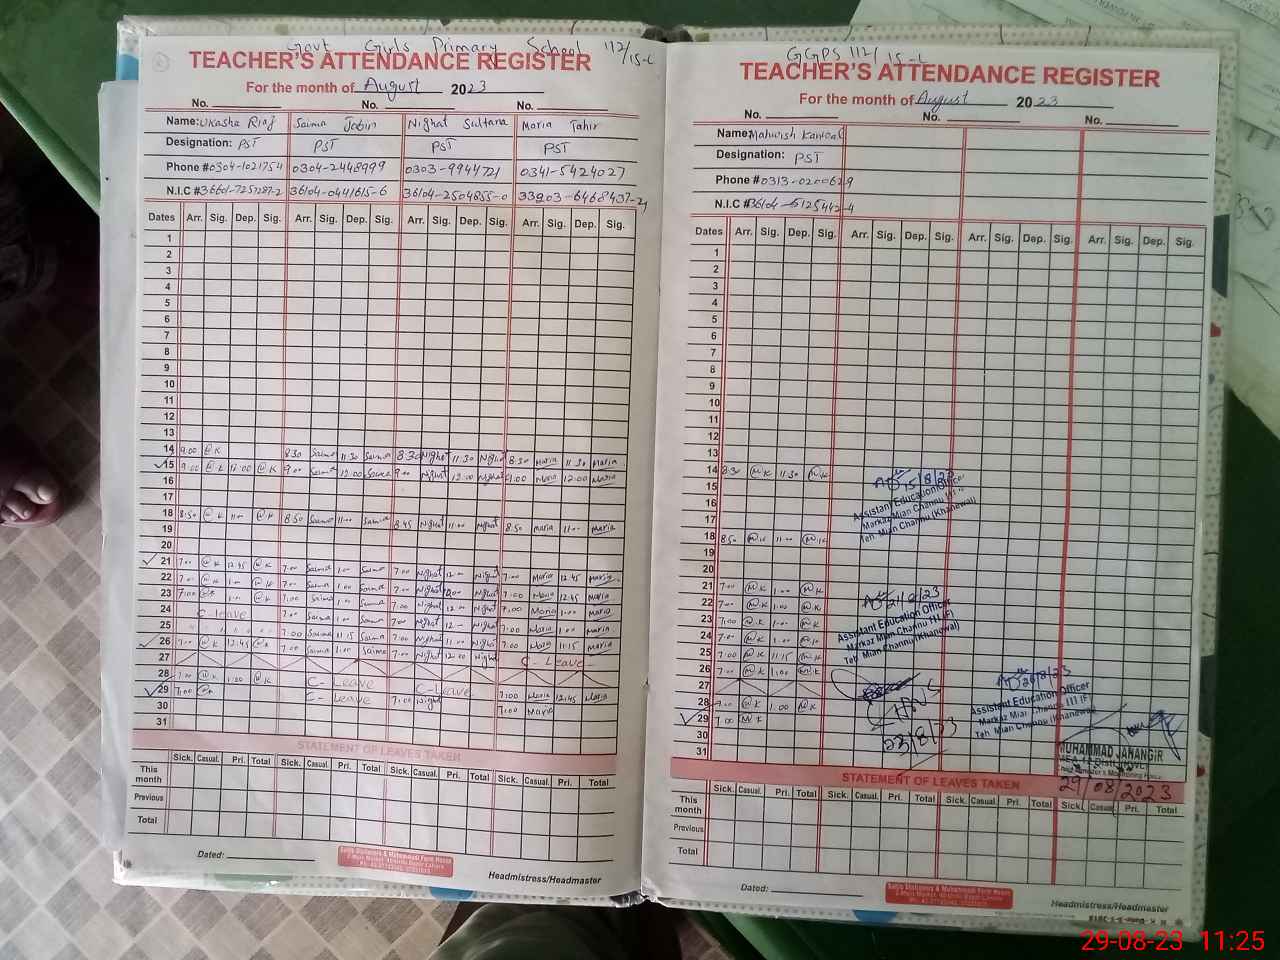 Govt Girls Primary School 112/15-L
TEACHER'S ATTENDANCE REGISTER
For the month of August 2023
No. No. No.
Name: Ukasha Riaj Saima Jabin Nighat Sultana Maria Tahir
Designation: PST PST PST PST
Phone # 0304-1021754 0304-2448999 0303-9944721 0341-5424027
N.I.C # 36601-7257287-2 36104-0441615-6 36104-2504655-0
Dates Arr. Sig. Dep. Sig. Arr. Sig. Dep. Sig. Arr. Sig. Dep. Sig. Arr. Sig. Dep. Sig.
1
2
3
4
5
6
7
8
9
10
11
12
13
14 9.00 @K 8:30 Saima 11:30 Saima 8:30 Nighat 11:30 Nighat 8:30 Maria 11:30 Maria
15 9.00 @K 12:00 @K 9.00 Saima 12.00 Saima 9.00 Nighat 12.00 Nighat 9.00 Maria 12:00 Maria
16
17
18 8:50 @K 11.00 @K 8:50 Saima 11.00 Saima 8.45 Nighat 11.00 Nighat 8.50 Maria 11.00 Maria
19
20
21 7.00 @K 12.45 @K 7.00 Saima 1.00 Saima 7.00 Nighat 12.00 Nighat 7.00 Maria 12.45 Maria
22 7.00 @K 1.00 @K 7.00 Saima 1.00 Saima 7.00 Nighat Nighat 7.00 Maria 12.45 Maria
23 7.00 @K 1.00 @K 7.00 Saima 1.00 Saima 7.00 Nighat 12.00 Nighat 7.00 Maria 1.00 Maria
24 C-leave 7.00 Saima 1.00 Saima 7.00 Nighat 12.00 Nighat 7.00 Maria 1.00 Maria
25 7.00 Saima 11.15 Saima 7.00 Nighat 11.00 Nighat 7.00 Maria 11.15 Maria
26 7.00 @K 12:45 @K 7.00 Saima 1.00 Saima 7.00 Nighat 12.00 Nighat C-Leave
27
28 7.00 @K 1.00 @K C-Leave C-Leave 7.00 Maria 12.45 Maria
29 7.00 @K C-Leave 7.00 Nighat 7.00 Maria
30
31
STATEMENT OF LEAVES TAKEN
Sick. Casual. Pri. Total Sick. Casual. Pri. Total Sick. Casual. Pri. Total Sick. Casual. Pri. Total
This month
Previous
Total
Dated:
Headmistress/Headmaster
GGPS 112/15-L
TEACHER'S ATTENDANCE REGISTER
For the month of August 2023
No. No. No.
Name: Mahwish Kanwal
Designation: PST
Phone # 0313-0200629
N.I.C # 36104-5125442-4
Dates Arr. Sig. Dep. Sig. Arr. Sig. Dep. Sig. Arr. Sig. Dep. Sig. Arr. Sig. Dep. Sig.
1
2
3
4
5
6
7
8
9
10
11
12
13
14 8:30 MK 11:30 MK
15
16
17
18 8:50 MK 11.00 MK
19
20
21 7.00 MK 1.00 MK
22 7.00 MK 1.00 MK
23 7.00 MK 1.00 MK
24 7.00 MK 1.00 MK
25 7.00 MK 11.15 MK
26 7.00 MK 1.00 MK
27
28 7.00 MK 1.00 MK
29 7.00 MK
30
31
15/8/23
Assistant Education Officer
Markaz Mian Channu III
Teh. Mian Channu (Khanewal)
21/8/23
Assistant Education Officer
Markaz Mian Channu III (F)
Teh. Mian Channu (Khanewal)
23/8/23
26/8/23
Assistant Education Officer
Markaz Mian Channu III (F)
Teh. Mian Channu (Khanewal)
MUHAMMAD JAHANGIR
29/08/2023
STATEMENT OF LEAVES TAKEN
Sick. Casual. Pri. Total Sick. Casual. Pri. Total Sick. Casual. Pri. Total Sick. Casual. Pri. Total
This month
Previous
Total
Dated:
Headmistress/Headmaster
29-08-23 11:25